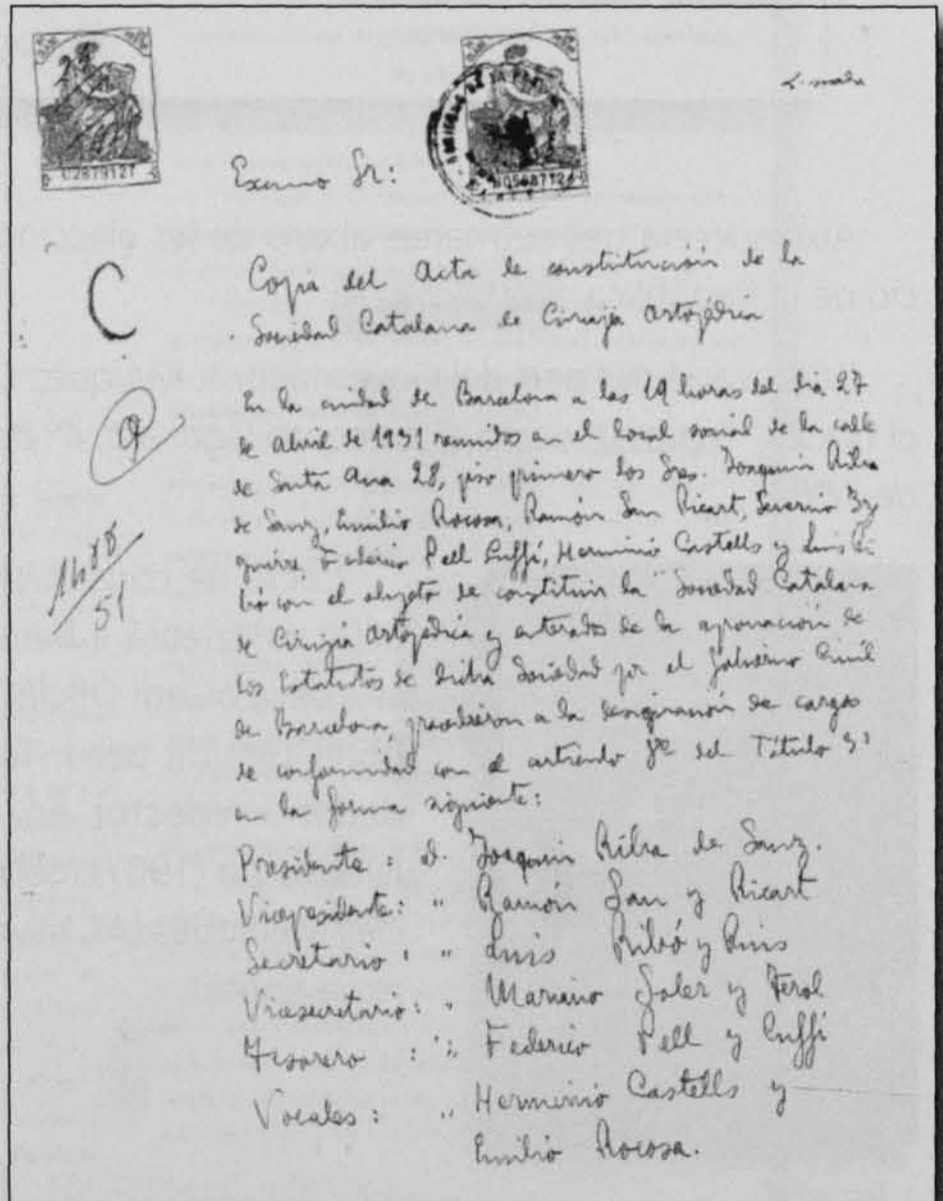 U2879127
Excmo Sr:
C
Copia del Acta de constitución de la
Sociedad Catalana de Cirujía Ortopédica
En la ciudad de Barcelona a las 19 horas del dia 27
de abril de 1931 reunidos en el local social de la calle
de Santa Ana 28, piso primero los Sres. Joaquin Ribra
de Sanz, Emilio Rocosa, Ramón San Ricart, Severino Yz
guirre Federico Pell Cuffí, Herminio Castells y Luis Ri
bó con el objeto de constituir la Sociedad Catalana
de Cirujía Ortopédica y enterados de la aprovación de
los Estatutos de dicha Sociedad por el Gobierno Civil
de Barcelona, procedieron a la designación de cargos
de conformidad con el artículo 8º del Título 3º
en la forma siguiente:
Presidente: d. Joaquin Ribra de Sanz.
Vicepresidente: " Ramón San y Ricart
Secretario: " Luis Ribó y Ruis
Vicesecretario: " Mariano Soler y Ferol
Tesorero: " Federico Pell y Cuffí
Vocales: " Herminio Castells y
Emilio Rocosa.
51